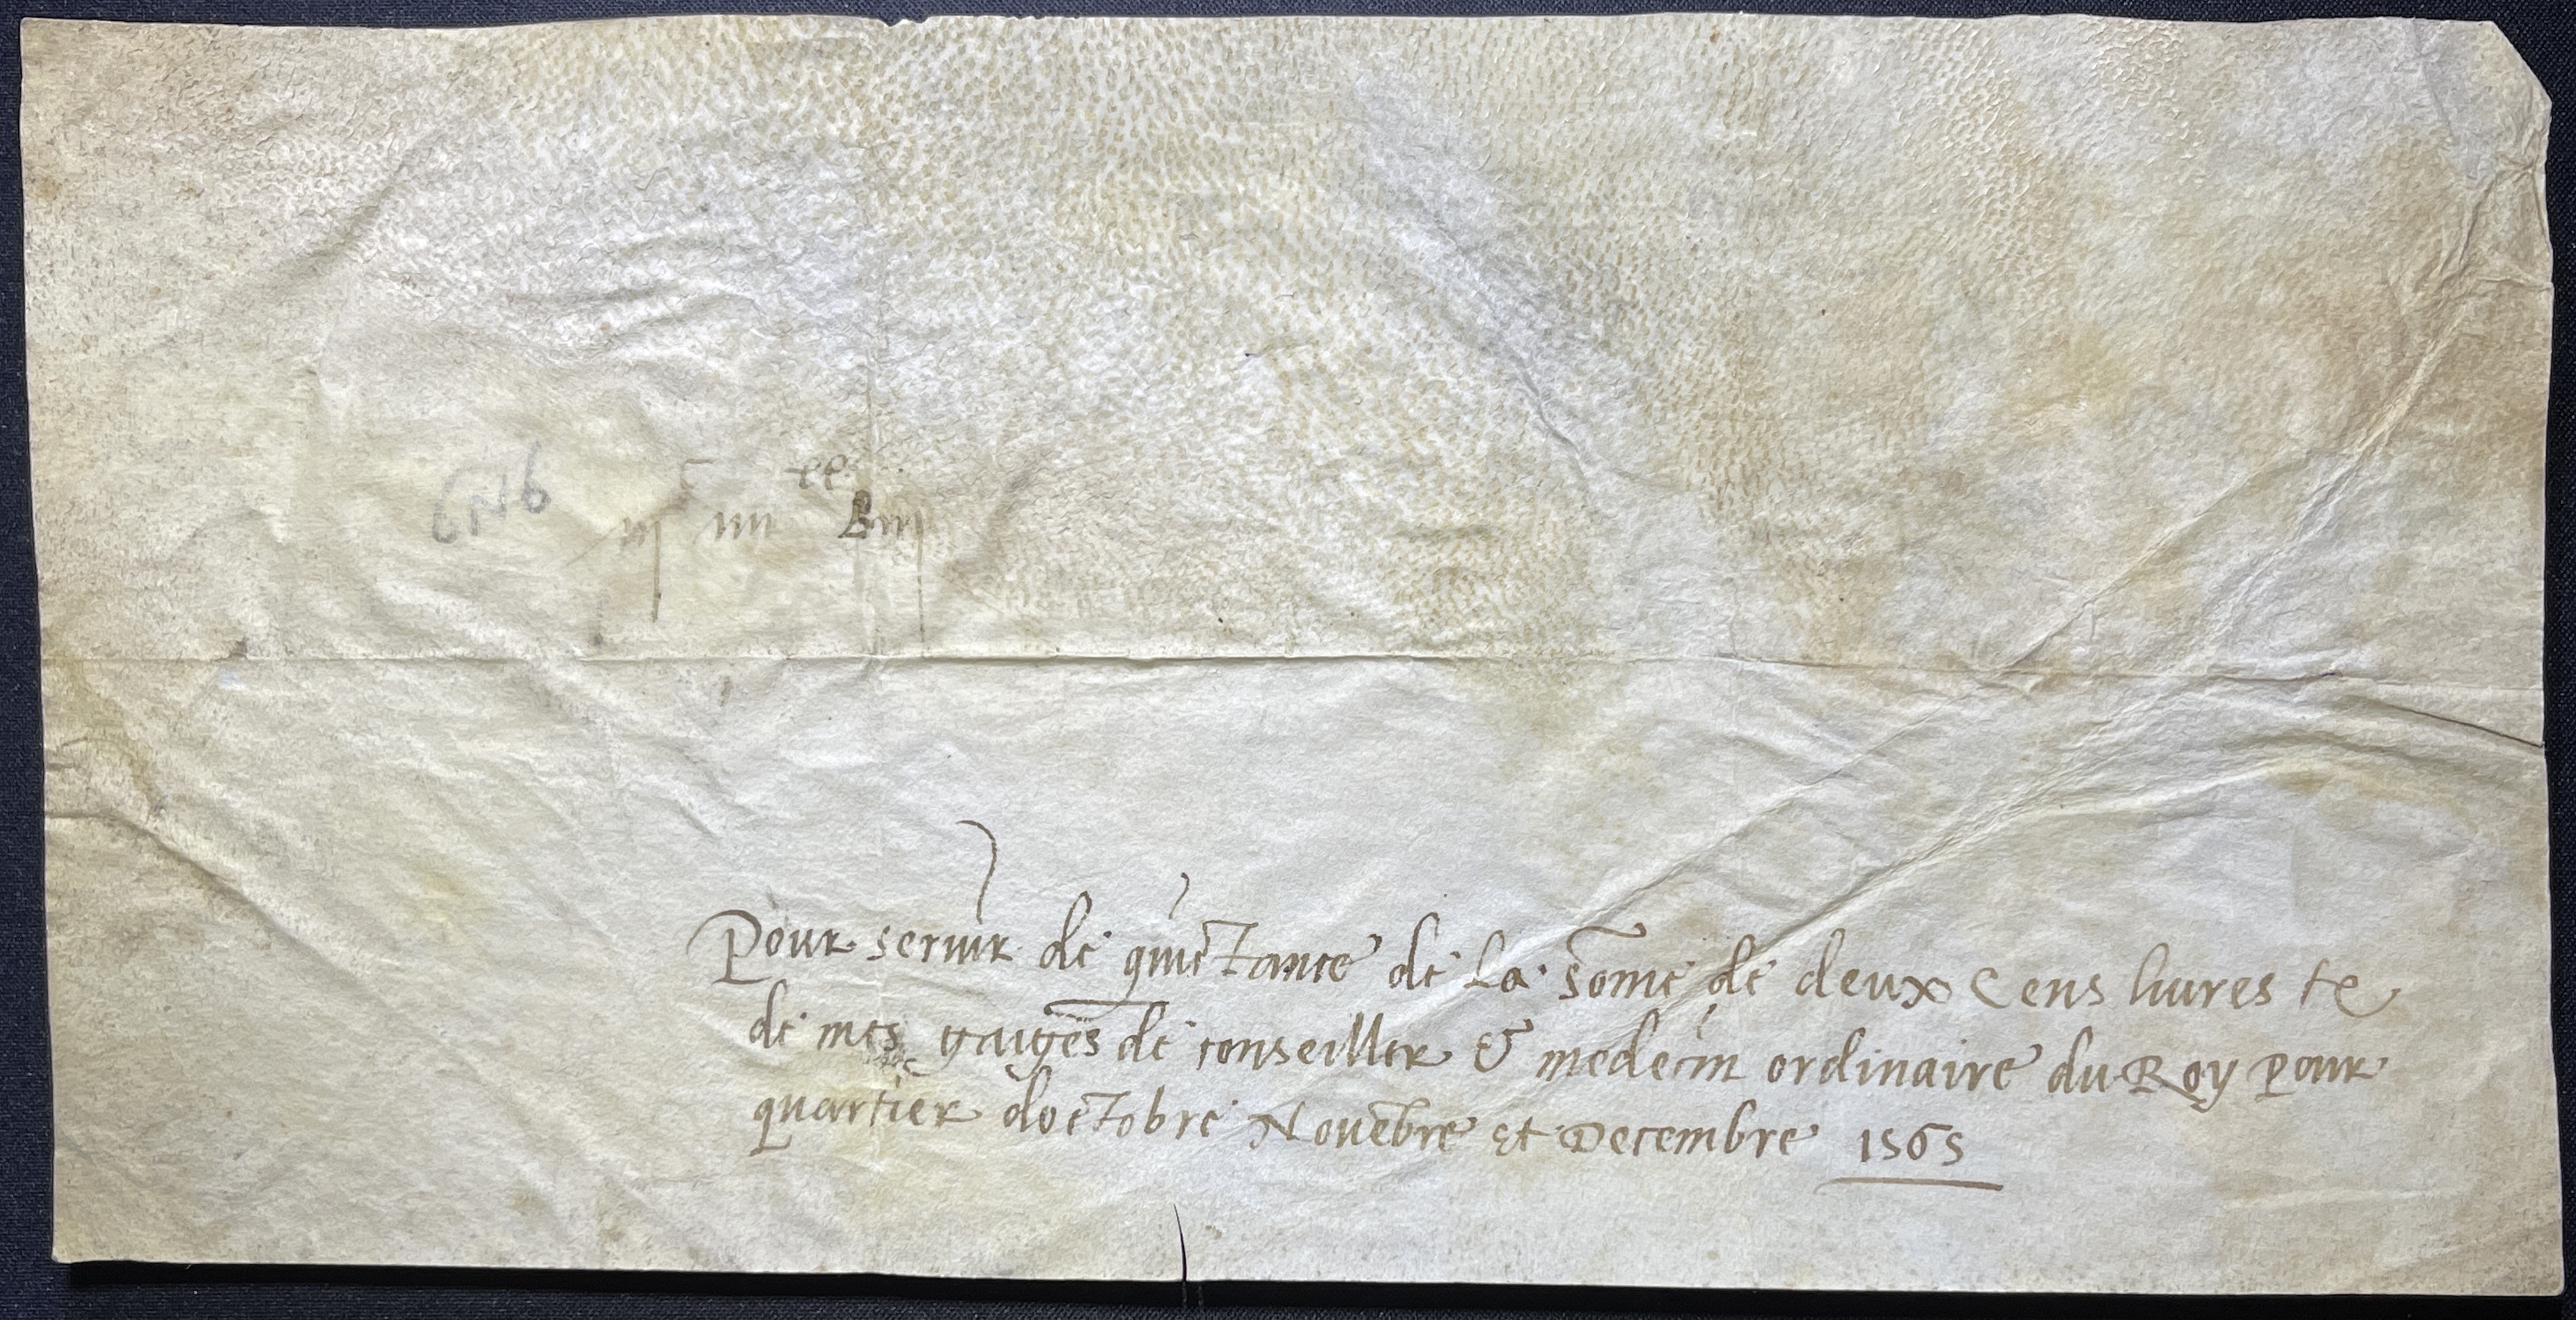 6N6 iijc iiii xx Biij
Pour servir de quictance de La some de deux Cens livres tz
de mes gaiges de conseiller & medecin ordinaire du Roy pour
quartier doctobre Novēbre et Decembre 1565